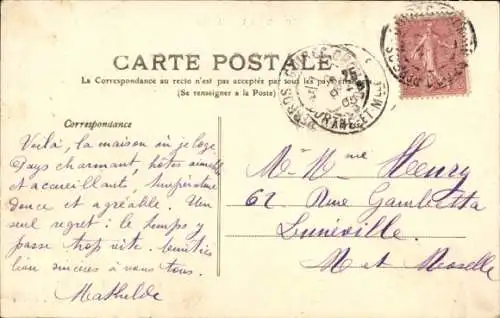 CARTE POSTALE
La Correspondance au recto n'est pas acceptée par tous les pays étrangers
(Se renseigner à la Poste)
Correspondance
Voilà, la maison où je loge
Pays charmant, hôtes aimables
et accueillants, température
douce et agréable. Un
seul regret : le temps y
passe trop vite. Amitiés
bien sincères à vous tous.
Mathilde
M. Mme Henry
62 Rue Gambetta
Lunéville.
M et Moselle